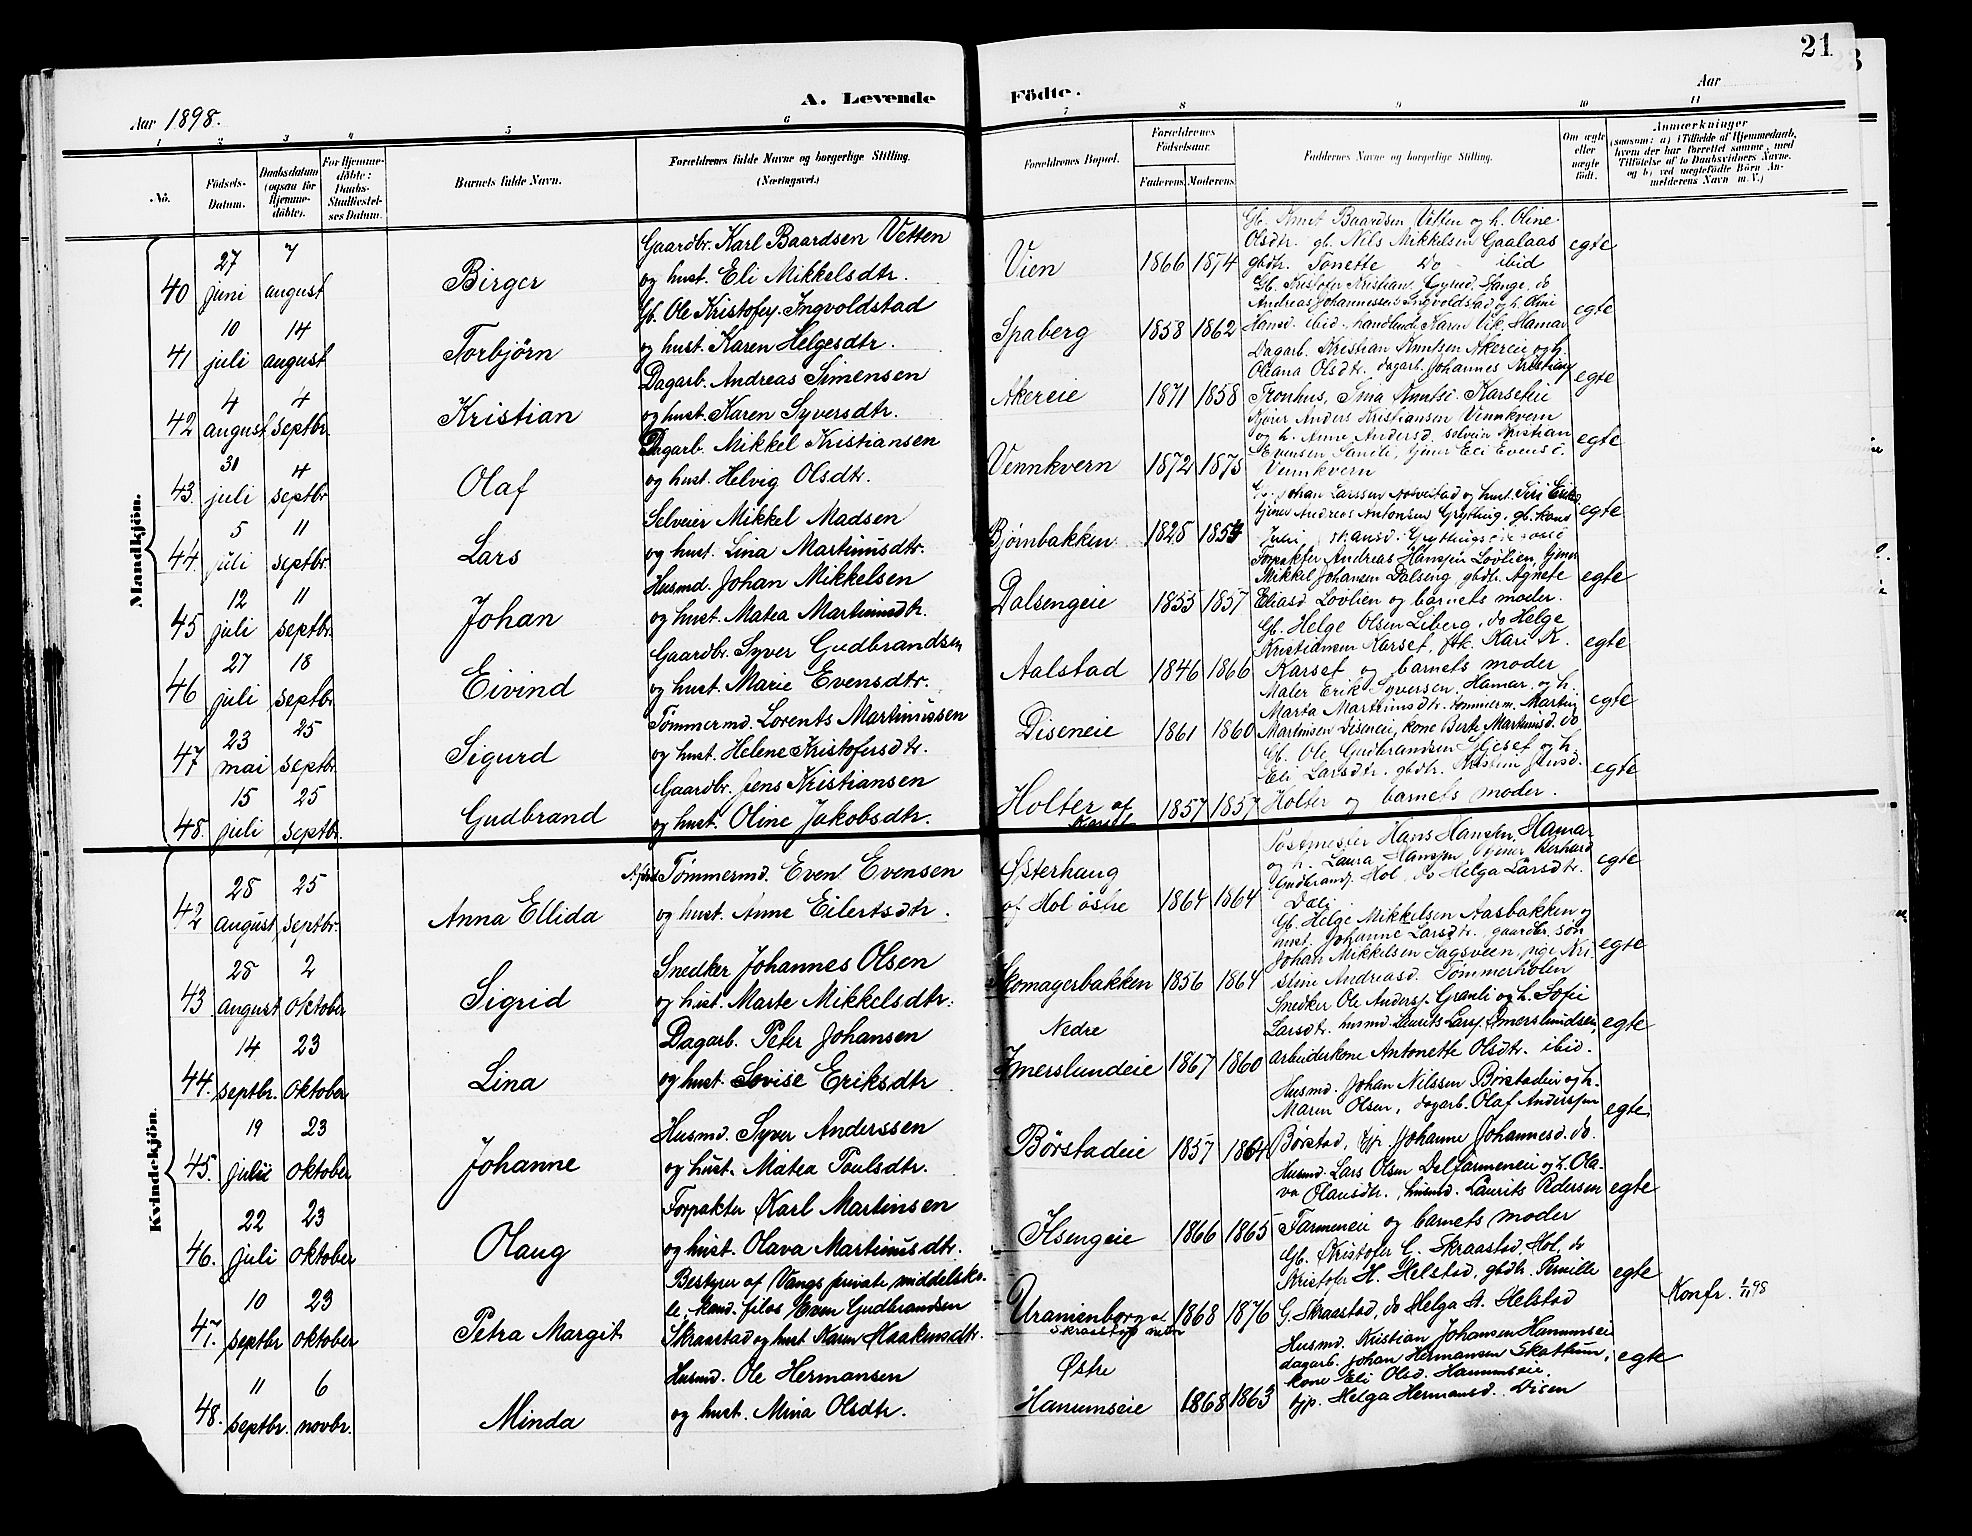 21
A. Levende Födte.
Aar 1898.
Aar
1 2 3 4 5 6 7 8 9 10 11
Nö.
Födsels-Datum.
Daabsdatum (ogsaa for Hjemme-döbte).
For Hjemme-döbte: Daabs-Stadfæstel-ses Datum.
Barnets fulde Navn.
Forældrenes fulde Navne og borgerlige Stilling. (Næringsvei.)
Forældrenes Bopæl.
Forældrenes Födselsaar.
Faderens Moderens
Faddernes Navne og borgerlige Stilling.
Om ægte eller uægte födt.
Anmærkninger
(saasom: a) i Tilfælde af Hjemmedaab, hvem der har forrettet samme, med Tilföielse af to Daabsvidners Navne, og b) ved uægtefödte Börn An-melderens Navn m. V.)
Mandkjön.
40 27 juni 7 august Birger
Gaardbr. Karl Baardsen Vetten
og hust. Eli Mikkelsdtr.
Vien 1866 1874
Gb. Knut Baardsen Vetten og h. Oline
Olsdtr. gb. Nils Mikkelsen Gaalaas
gbdtr. Tonette do ibid
egte
41 10 juli 14 august Torbjörn
Gb. Ole Kristofers. Ingvoldstad
og hust. Karen Helgesdtr.
Spaberg 1858 1862
Gb. Kristofer Kristians. Stange, do
Andreas Johannessen Ingvoldstad og h. Olini
Hansd. ibid. Karen Vik, Hamar
egte
42 4 august 4 septbr. Kristian
Dagarb. Andreas Simensen
og hust. Karen Syversdtr.
Akereie 1871 1858
Dagarb. Kristian Knutsen Akereie og h.
Oleana Olsdtr., dagarb. Johannes Kristians
Tronhus, Knuts. Karseteie
egte
43. 31 juli 4 septbr Olaf
Dagarb. Mikkel Kristiansen
og hust. Helvig Olsdtr.
Vennkvern 1872 1875
Kjörer Anders Kristiansen Vennkvern
og h. Anne Andersd. selveier Kristian
Evensen Eli Evensd.
Vennkvern
egte
44. 5 juli 11 septbr. Lars
Selveier Mikkel Madsen
og hust. Lina Martinusdtr.
Bjørnbakken 1828 1854
Gb. Johan Larssen og hust. Siri Eriksd
tjener Andreas Antonsen Grytting, gb. kone
egte
45 12 juli 11 septbr. Johan
Husmd. Johan Mikkelsen
og hust. Matea Martinusdtr.
Dalsengeie 1855 1857
Forpakter Andreas Hanssen Lovlien, tjener
Mikkel Johansen Dalseng, gbdtr. Agnete
Eliasd Lovlien og barnets moder.
egte
46 27 juli 18 septbr. Eivind
Gaardbr. Syver Gudbrandsen
og hust. Marie Evensdtr.
Aalstad 1846 1866
Gb. Helge Olsen Liberg, do Helge
Kristiansen Karset, Kari K.
Karset og barnets moder
egte
47 23 mai 25 septbr. Sigurd
Tømmermd. Lorents Martinussen
og hust. Helene Kristofersdtr.
Diseneie 1861 1860
Maler Erik Syversen, Hamar, og h.
Marta Martinusdtr. tømmerm. Martin
Martinsen Diseneie, kone Berte Martinusd. do
egte
48. 15 juli 25 septbr. Gudbrand
Gaardbr. Jens Kristiansen
og hust. Oline Jakobsdtr.
Holter af 1857 1857
Gb. Ole Gudbrandsen og h.
Eli Larsdtr. gbdtr. Kristine Jensd.
Holter og barnets moder.
egte
Kvindekjön.
42 28 august 25 septbr. Anna Ellida
Tømmermd. Even Evensen
og hust. Anne Eilertsdtr.
Østerhaug
af Hol østre 1864 1864
Postmester Hans Hansen, Hamar
og h. Laura Hanssen, tjener Berhard
Gudbrands. Hol, do Helga Larsdtr.
Dæli
egte
43 28 august 2 oktober Sigrid
Snedker Johannes Olsen
og hust. Marte Mikkelsdtr.
Skomagerbakken 1856 1864
Gb. Helge Mikkelsen Aasbakken og
hust. Johanne Larsdtr. gaardbr. søn
Johan Mikkelsen Sagsveen, pige Kri-
stine Andreasd. Tømmerholen
egte
44. 14 septbr. 23 oktober Lina
Dagarb. Peter Johansen
og hust. Lovise Eriksdtr
Nedre
Imerslundeie 1867 1860
Snedker Ole Anderss. Granli og h. Sofie
Larsdtr. husmd. Laurits Larss. Imerslundseie
arbeiderkone Antonette Olsdtr. ibid.
egte
45. 19 julii 23 oktober Johanne
Husmd. Syver Anderssen
og hust. Matea Poulsdtr.
Børstadeie 1857 1864
Husmd. Johan Nilssen Børstadeie og h.
Maren Olsen, dagarb. Olaf Anderssen
Børstad, tjp. Johanne Johannesd. do.
egte.
46. 22 juli 23 oktober Olaug
Forpakter Karl Martinsen
og hust. Olava Martinusdtr.
Ilsengeie 1866 1865
Husmd. Lars Olsen Delfarmeneie og h. Ola-
va Olausdtr. husmd. Laurits Pedersen
Farmeneie og barnets moder
egte
47. 10 septbr 23 oktober Petra Margit
Bestyrer af Vangs private middelsko-
le, kand. filos Even Gudbrandsen
Skraastad og hust Karen Haakensdtr.
Uranienborg af 1868 1876
Skraastad nedre
Gb. Kristofer C. Skraastad, Hol, do
Kristofer H. Helstad, gbdtr. Pernille
G. Skraastad, do Helga A. Helstad
egte
Konfr. 1/11 98
48. 11 septbr. 6 novbr. Minda
Husmd. Ole Hermansen
og hust. Mina Olsdtr.
Østre
Hanumseie 1868 1863
Husmd. Kristian Johansen Hanumseie
dagarb. Johan Hermansen Skattum,
kone Eli Olsd. Hanumseie.
tjp. Helga Hermansd. Disen
egte